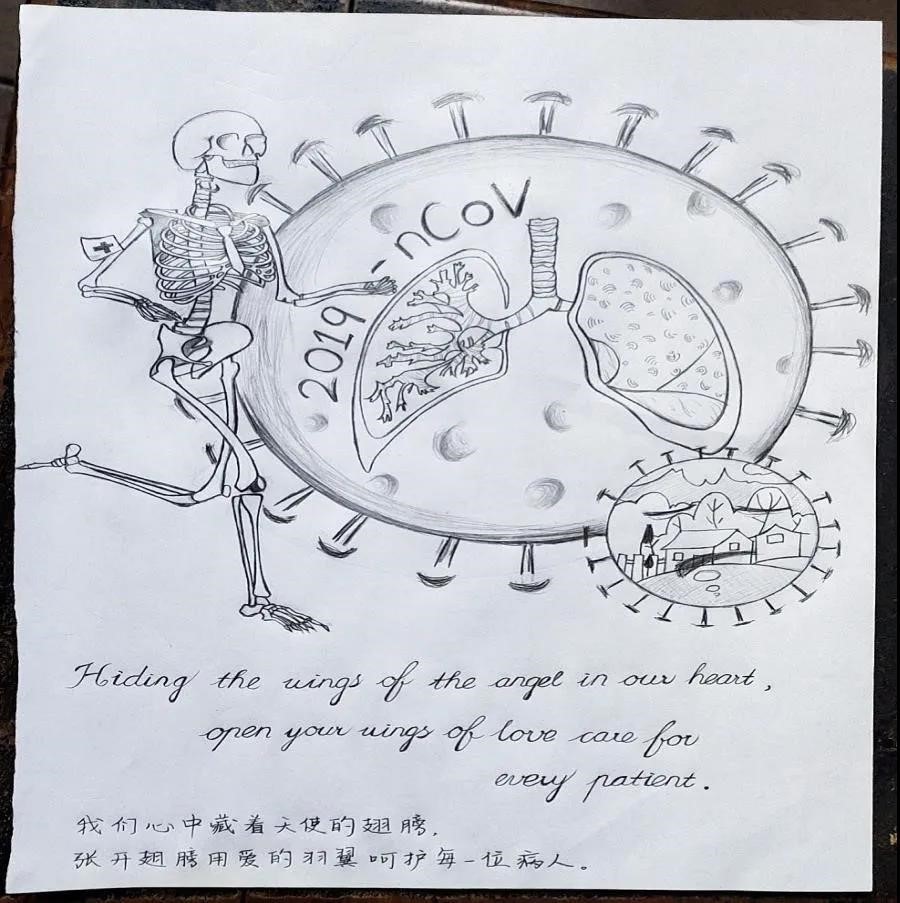 2019-nCoV
Hiding the wings of the angel in our heart,
open your wings of love care for
every patient.
我们心中藏着天使的翅膀,
张开翅膀用爱的羽翼呵护每一位病人。